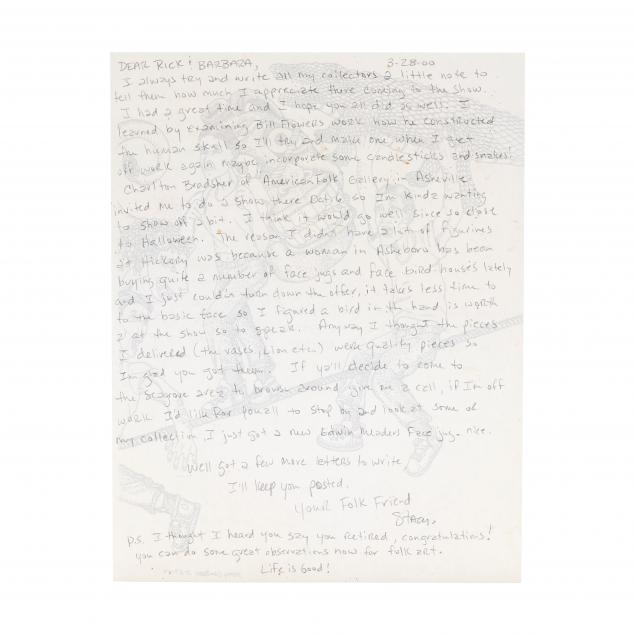 DEAR RICK & BARBARA, 3-28-00
I always try and write all my collectors a little note to
tell them how much I appreciate there coming to the show.
I had a great time and I hope you all did as well. I
learned by examining Bill Flowers work how he constructed
the human skull so I'll try and make one when I get
off work again maybe incorporate some candlesticks and snakes!
Charlton Bradsher of American Folk Gallery in Asheville
invited me to do a show there Oct. 6 so I'm kinda wanting
to show off a bit. I think it would go well since so close
to Halloween. The reason I didn't have a lot of figurines
at Hickory was because a woman in Asheboro has been
buying quite a number of face jugs and face bird houses lately
and I just couldn turn down the offer, it takes less time to
to the basic face so I figured a bird in the hand is worth
2 at the show so to speak. Anyway I thought the pieces
I delivered (the vases, Lion etc.) were quality pieces so
Im glad you got them. If ya'll decide to come to
the Seagrove area to browse around give me a call, if I'm off
work I'd like for you all to stop by and look at some of
my collection, I just got a new Edwin Meaders Face jug. nice.
Well got a few more letters to write
I'll keep you posted.
Your Folk Friend
Stacy.
P.S. I thought I heard you say you retired, congratulations!
you can do some great observations now for folk art.
Life is Good!